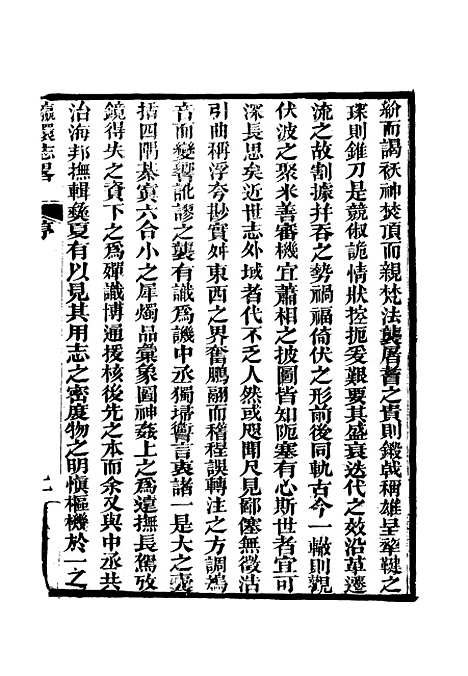 紛而謁祅神焚頂而親梵法襲屠耆之貴則鍛戟稱雄呈犛鞬之
琛則錐刀是競俶詭情狀控扼爰艱要其盛衰迭代之效沿革遷
流之故割據并吞之勢禍福倚伏之形前後同軌古今一轍則觀
伏波之聚米善審機宜蕭相之披圖皆知阨塞有心斯世者宜可
深長思矣近世志外域者代不乏人然或咫聞尺見鄙僿無徵沽
引曲稱浮夸尟實舛東西之界奮鵬翮而稽程誤轉注之方調鴂
音而變響訛謬之襲有識爲譏中丞獨埽讏言衷諸一是大之囊
括四隅綦寘六合小之犀燭品彙象圖神姦上之爲遠撫長駕攷
鏡得失之資下之爲殫識博通援核後先之本而余又與中丞共
治海邦撫輯彝夏有以見其用志之密度物之明愼樞機於一之
瀛寰志畧
序